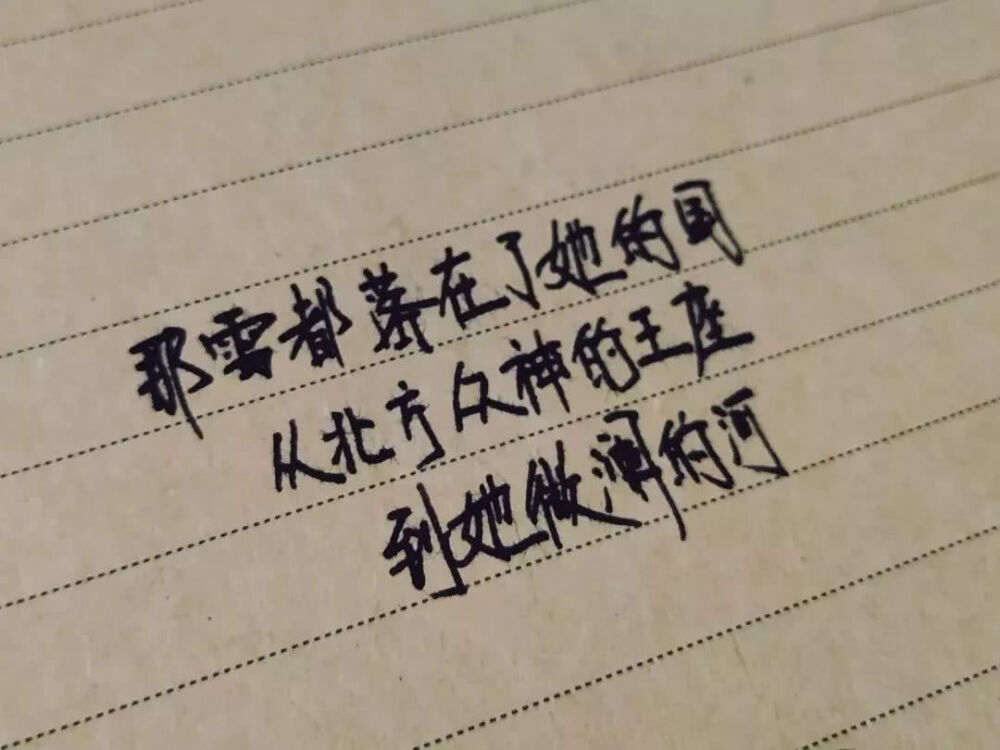 那雪都落在了她的国
从北方众神的王座
到她微澜的河